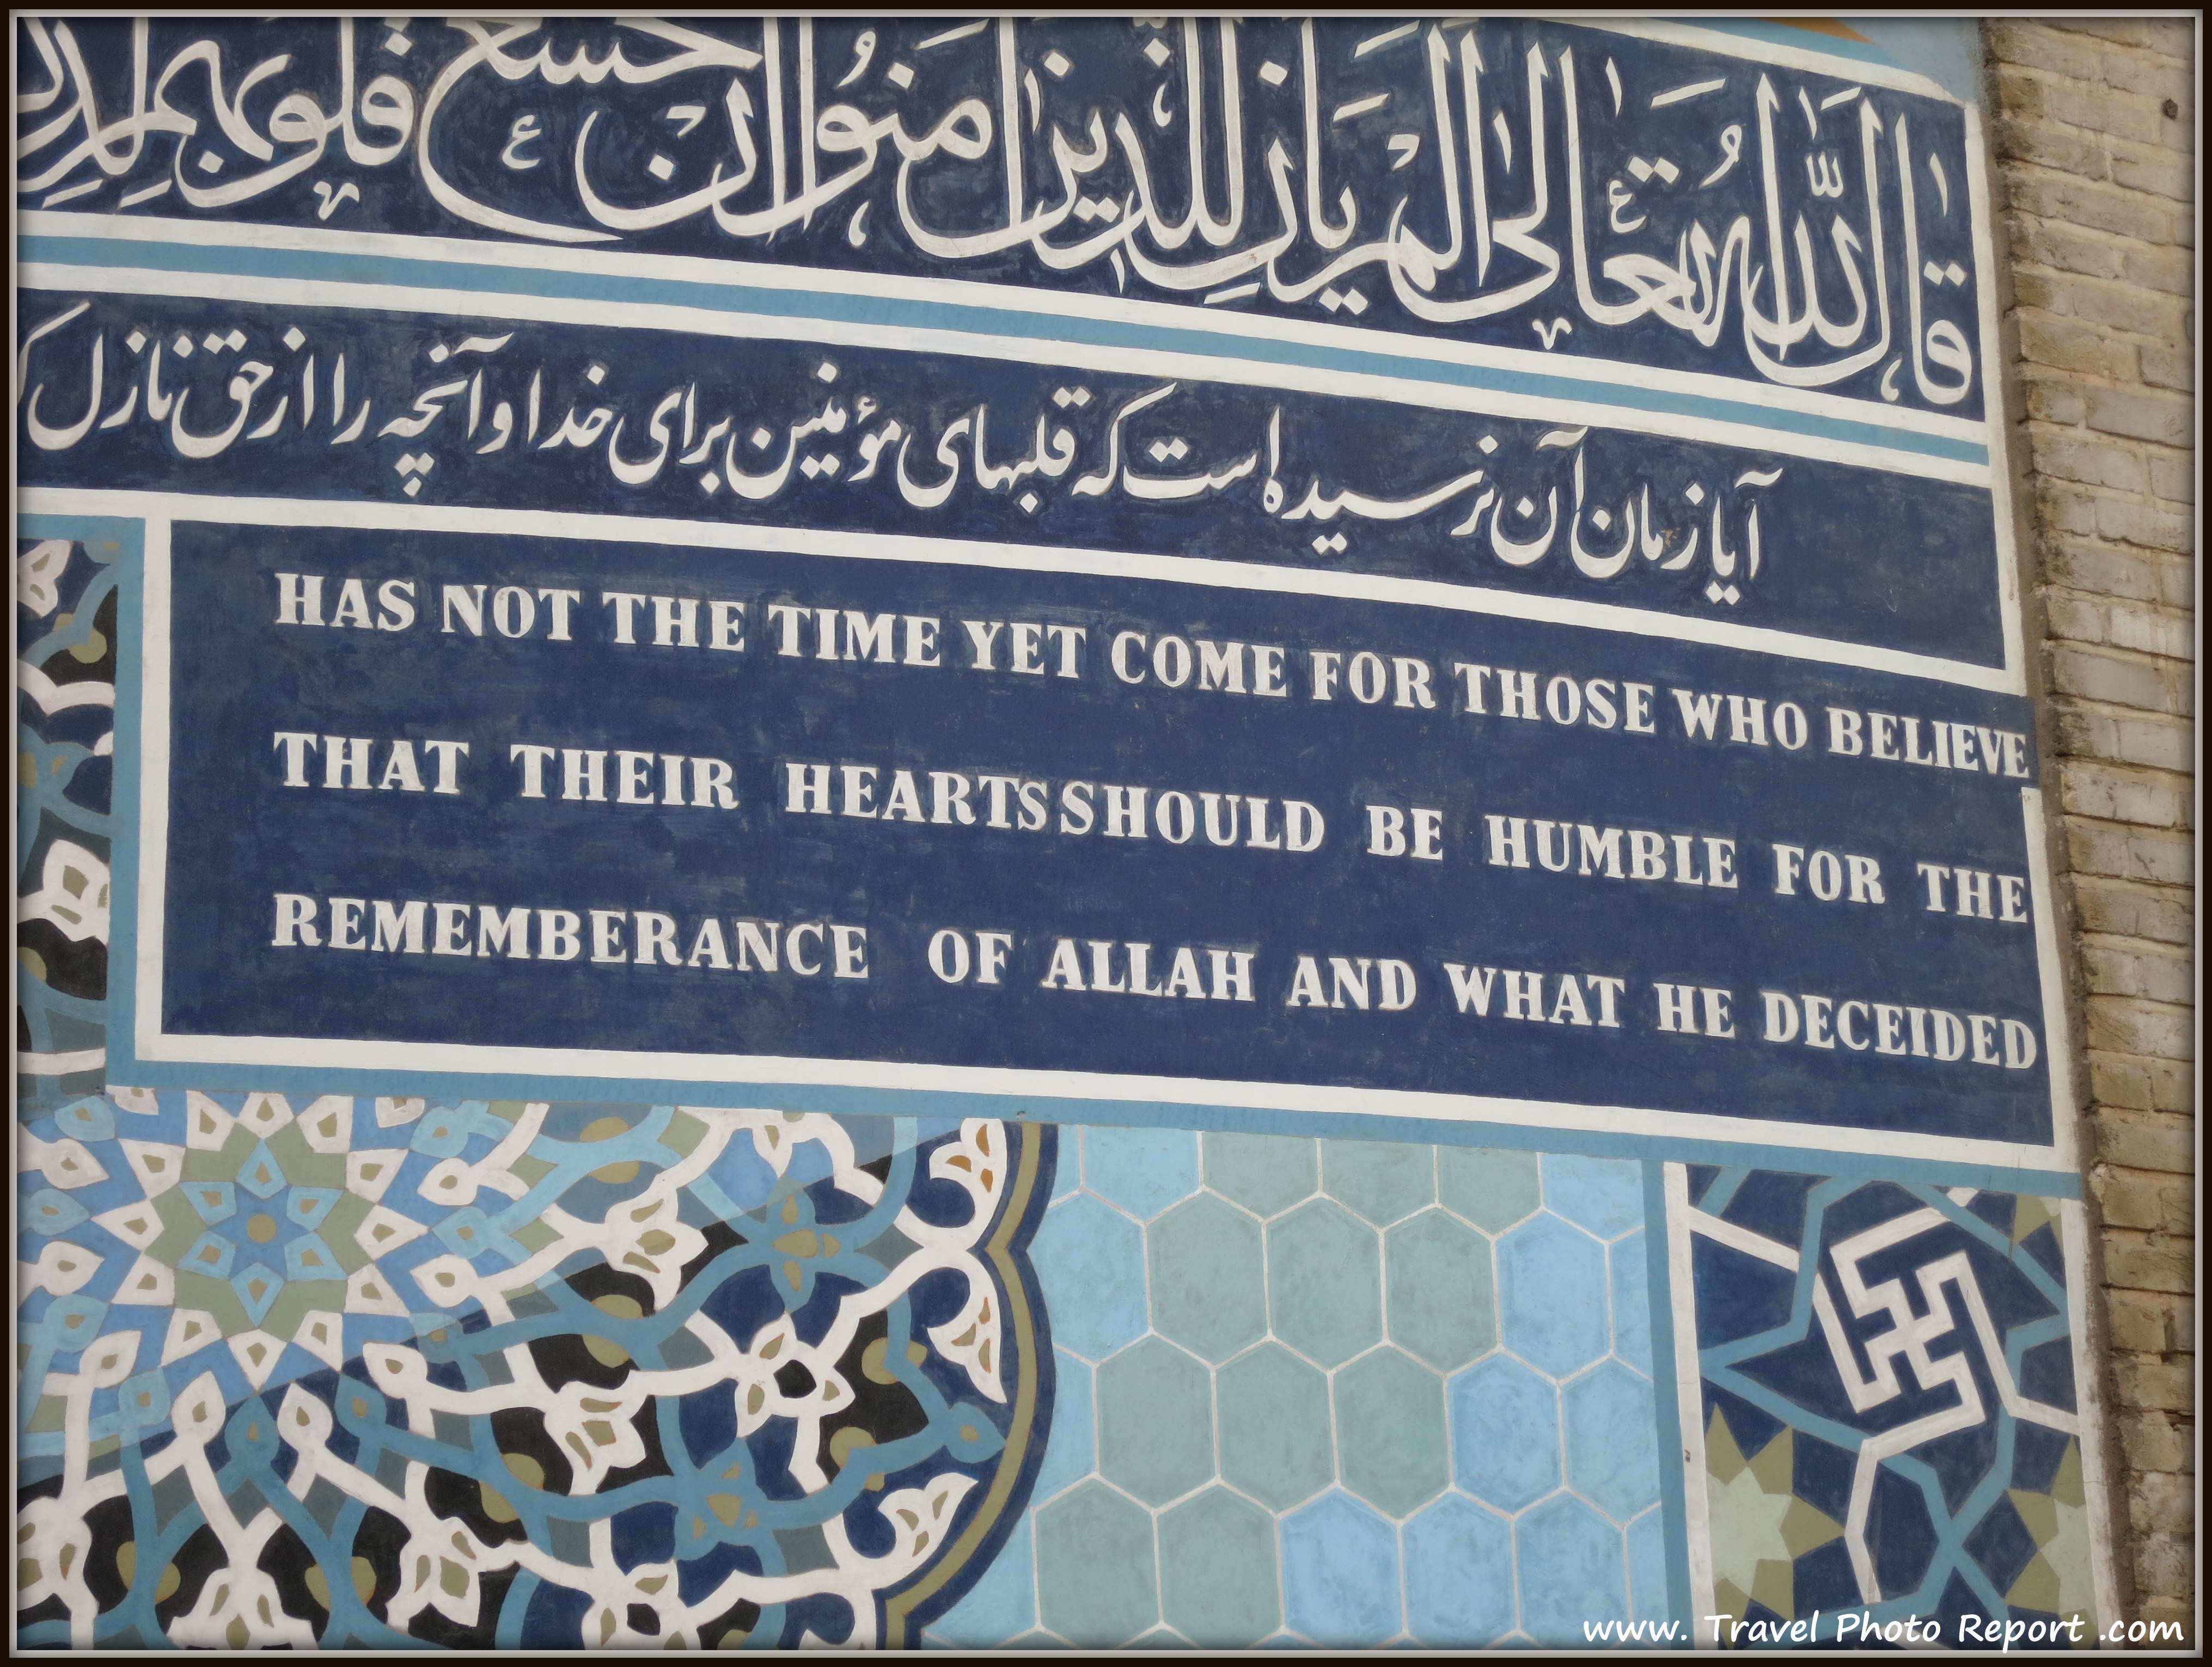 قَالَ اللّٰهُ تَعَالىٰ اَلَمْ یَانِ لِلَّذینَ امَنُوا اَنْ تَخْشَعَ قُلُوبُهُمْ
آیا زمان آن نرسیده است که قلبهای مؤمنین برای خدا و آنچه را از حق نازل
HAS NOT THE TIME YET COME FOR THOSE WHO BELIEVE
THAT THEIR HEARTS SHOULD BE HUMBLE FOR THE
REMEMBERANCE OF ALLAH AND WHAT HE DECEIDED
www. Travel Photo Report .com